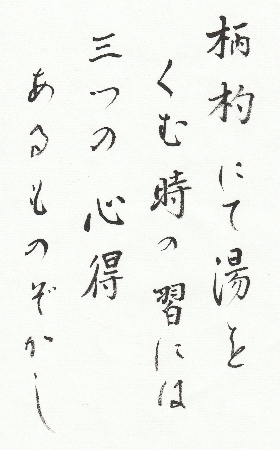 柄杓にて湯を
くむ時の習には
三つの心得
あるものぞかし